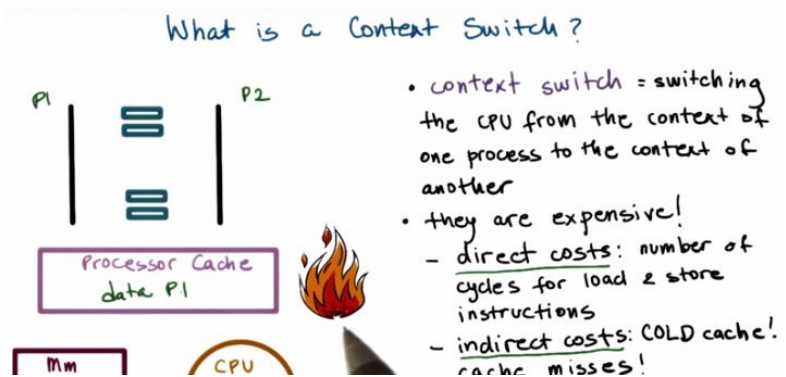 What is a Context Switch?
P1
P2
Processor Cache
data P.1
mm
CPU
• context switch = switching
the CPU from the context of
one process to the context of
another
• they are expensive!
- direct costs: number of
cycles for load & store
instructions
- indirect costs: COLD cache!
cache misses!